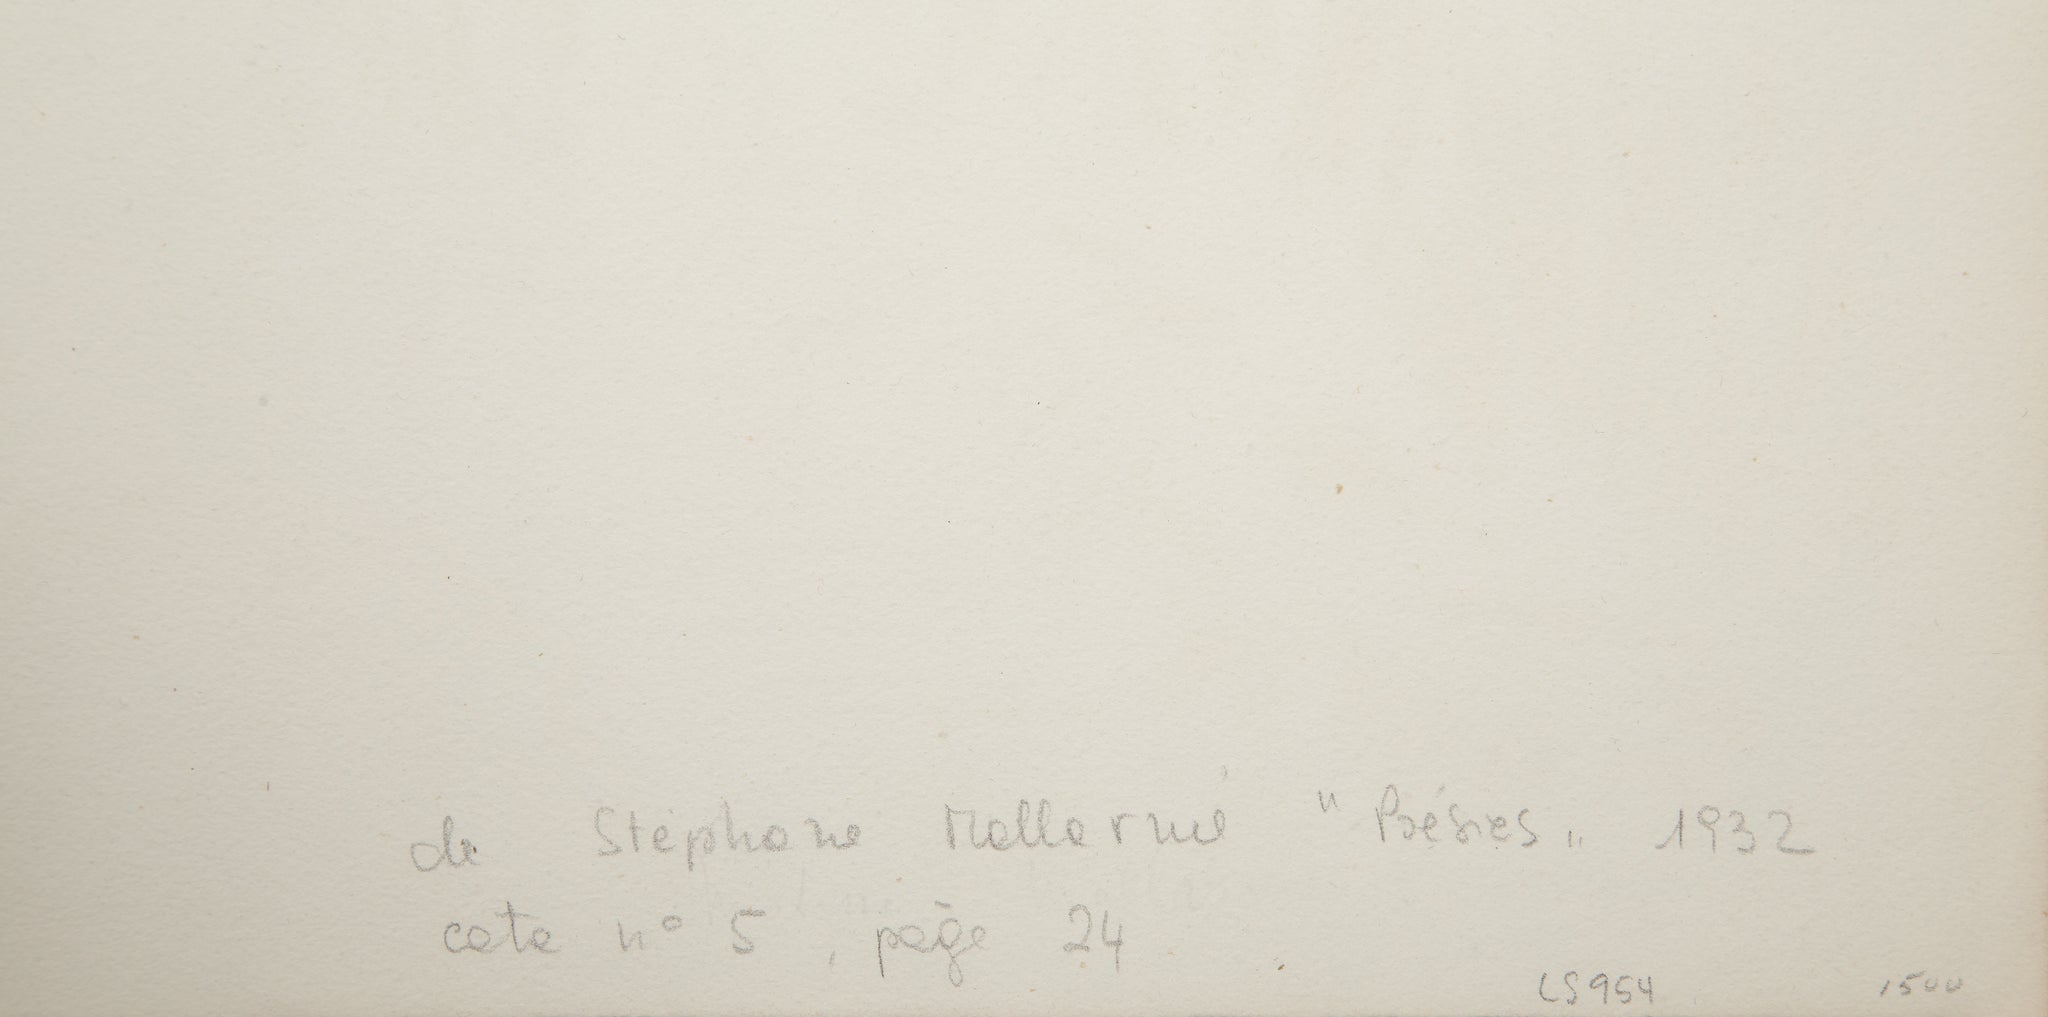 de Stéphane Mallarmé " Poésies „ 1932
cata n° 5, page 24
LS954 1500